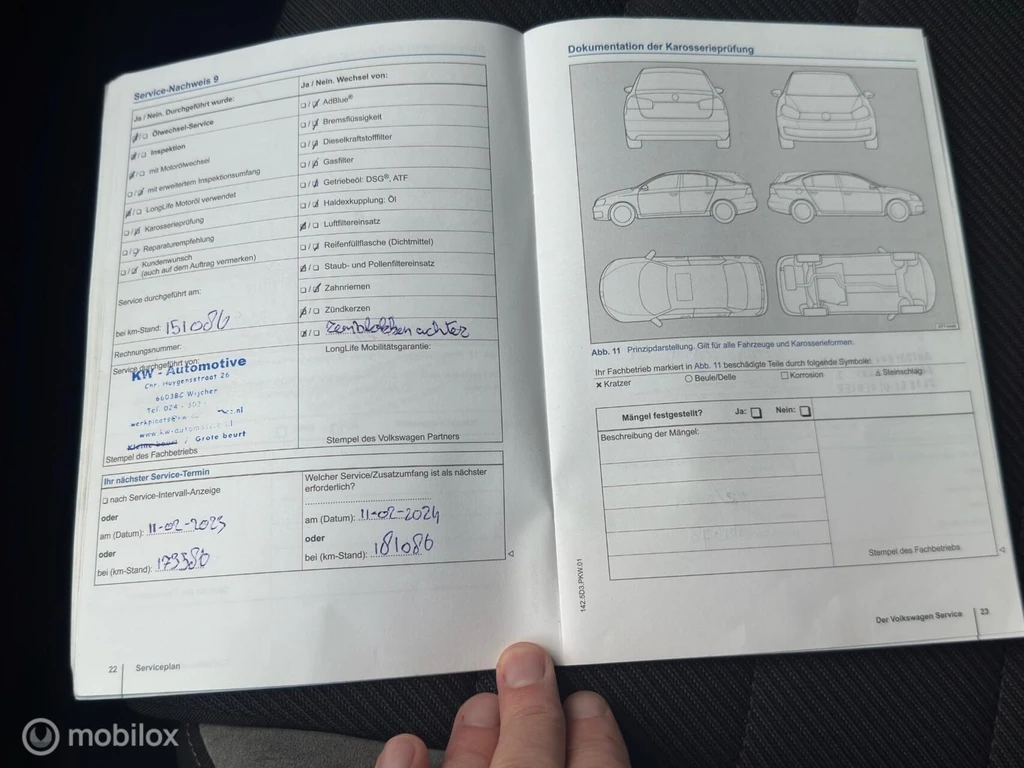 Service-Nachweis 9
Ja / Nein. Durchgeführt wurde:
Ölwechsel-Service
Inspektion
mit Motorölwechsel
mit erweitertem Inspektionsumfang
LongLife Motoröl verwendet
Karosserieprüfung
Reparaturempfehlung
Kundenwunsch
(auch auf dem Auftrag vermerken)
Service durchgeführt am:
bei km-Stand: 151086
Rechnungsnummer:
Service durchgeführt von:
KW - Automotive
Chr. Huygensstraat 26
6603BC Wijchen
Tel. 024 -
werkplaats@kw .nl
www.kw-automotive.nl
Kleine beurt / Grote beurt
Stempel des Fachbetriebs
Ja / Nein. Wechsel von:
AdBlue®
Bremsflüssigkeit
Dieselkraftstofffilter
Gasfilter
Getriebeöl: DSG®, ATF
Haldexkupplung: Öl
Luftfiltereinsatz
Reifenfüllflasche (Dichtmittel)
Staub- und Pollenfiltereinsatz
Zahnriemen
Zündkerzen
remblokken achter
LongLife Mobilitätsgarantie:
Stempel des Volkswagen Partners
Ihr nächster Service-Termin
nach Service-Intervall-Anzeige
oder
am (Datum): 11-02-2023
oder
bei (km-Stand): 173586
Welcher Service/Zusatzumfang ist als nächster
erforderlich?
am (Datum): 11-02-2024
oder
bei (km-Stand): 181086
22 | Serviceplan
Dokumentation der Karosserieprüfung
Abb. 11 Prinzipdarstellung. Gilt für alle Fahrzeuge und Karosserieformen.
Ihr Fachbetrieb markiert in Abb. 11 beschädigte Teile durch folgende Symbole:
x Kratzer
Beule/Delle
Korrosion
Steinschlag
Mängel festgestellt? Ja: Nein:
Beschreibung der Mängel:
Stempel des Fachbetriebs
142.5D3.PKW.01
Der Volkswagen Service | 23
mobilox